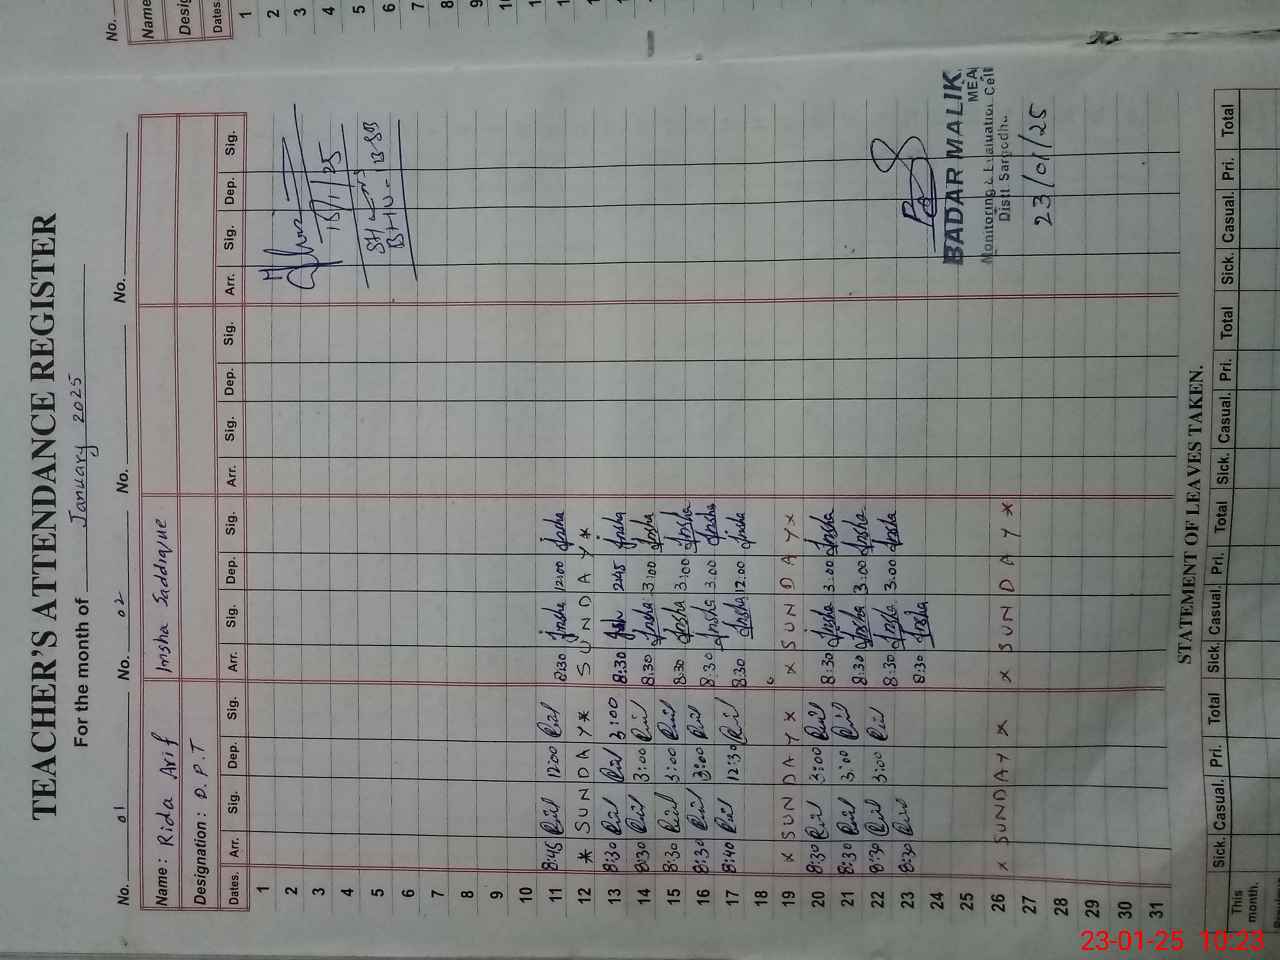 TEACHER'S ATTENDANCE REGISTER
For the month of January 2025
No. 01 No. 02 No. No.
Name: Rida Arif Insha Saddique
Designation: D.P.T
Dates. Arr. Sig. Dep. Sig. Arr. Sig. Dep. Sig. Arr. Sig. Dep. Sig. Arr. Sig. Dep. Sig.
1
2
3
4 15/1/25
5
6
7
8
9
10
11 8:45 12:00 8:30 Insha 12:00 Insha
12 * SUNDAY * SUNDAY *
13 8:30 3:00 8:30 Insha 2:45 Insha
14 8:30 3:00 8:30 Insha 3:00 Insha
15 8:30 3:00 8:30 Insha 3:00 Insha
16 8:30 3:00 8:30 Insha 3:00 Insha
17 8:40 12:30 8:30 Insha 12:00 Insha
18
19 x SUNDAY x x SUNDAY x
20 8:30 3:00 8:30 Insha 3:00 Insha
21 8:30 3:00 8:30 Insha 3:00 Insha
22 8:30 3:00 8:30 Insha 3:00 Insha
23 8:30 8:30 Insha
24
25 BADAR MALIK
MEA
Monitoring & Evaluation Cell
26 x SUNDAY x x SUNDAY x Distt Sargodha
27 23/01/25
28
29
30
31
STATEMENT OF LEAVES TAKEN.
Sick. Casual. Pri. Total Sick. Casual. Pri. Total Sick. Casual. Pri. Total Sick. Casual. Pri. Total
This month.
No.
Name
Desig
Dates.
1
2
3
4
5
6
7
8
9
23-01-25 10:23